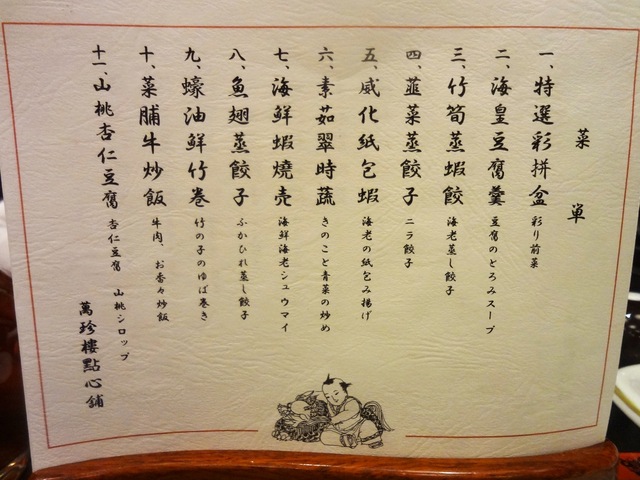 菜単
一、特選彩拼盆 彩り前菜
二、海皇豆腐羹 豆腐のとろみスープ
三、竹筍蒸蝦餃 海老蒸し餃子
四、韮菜蒸餃子 ニラ餃子
五、威化紙包蝦 海老の紙包み揚げ
六、素茹翠時蔬 きのこと青菜の炒め
七、海鮮蝦焼売 海鮮海老シュウマイ
八、魚翅蒸餃子 ふかひれ蒸し餃子
九、蠔油鮮竹巻 竹の子のゆば巻き
十、菜脯牛炒飯 牛肉、お香々炒飯
十一、山桃杏仁豆腐 杏仁豆腐 山桃シロップ
萬珍樓點心舗